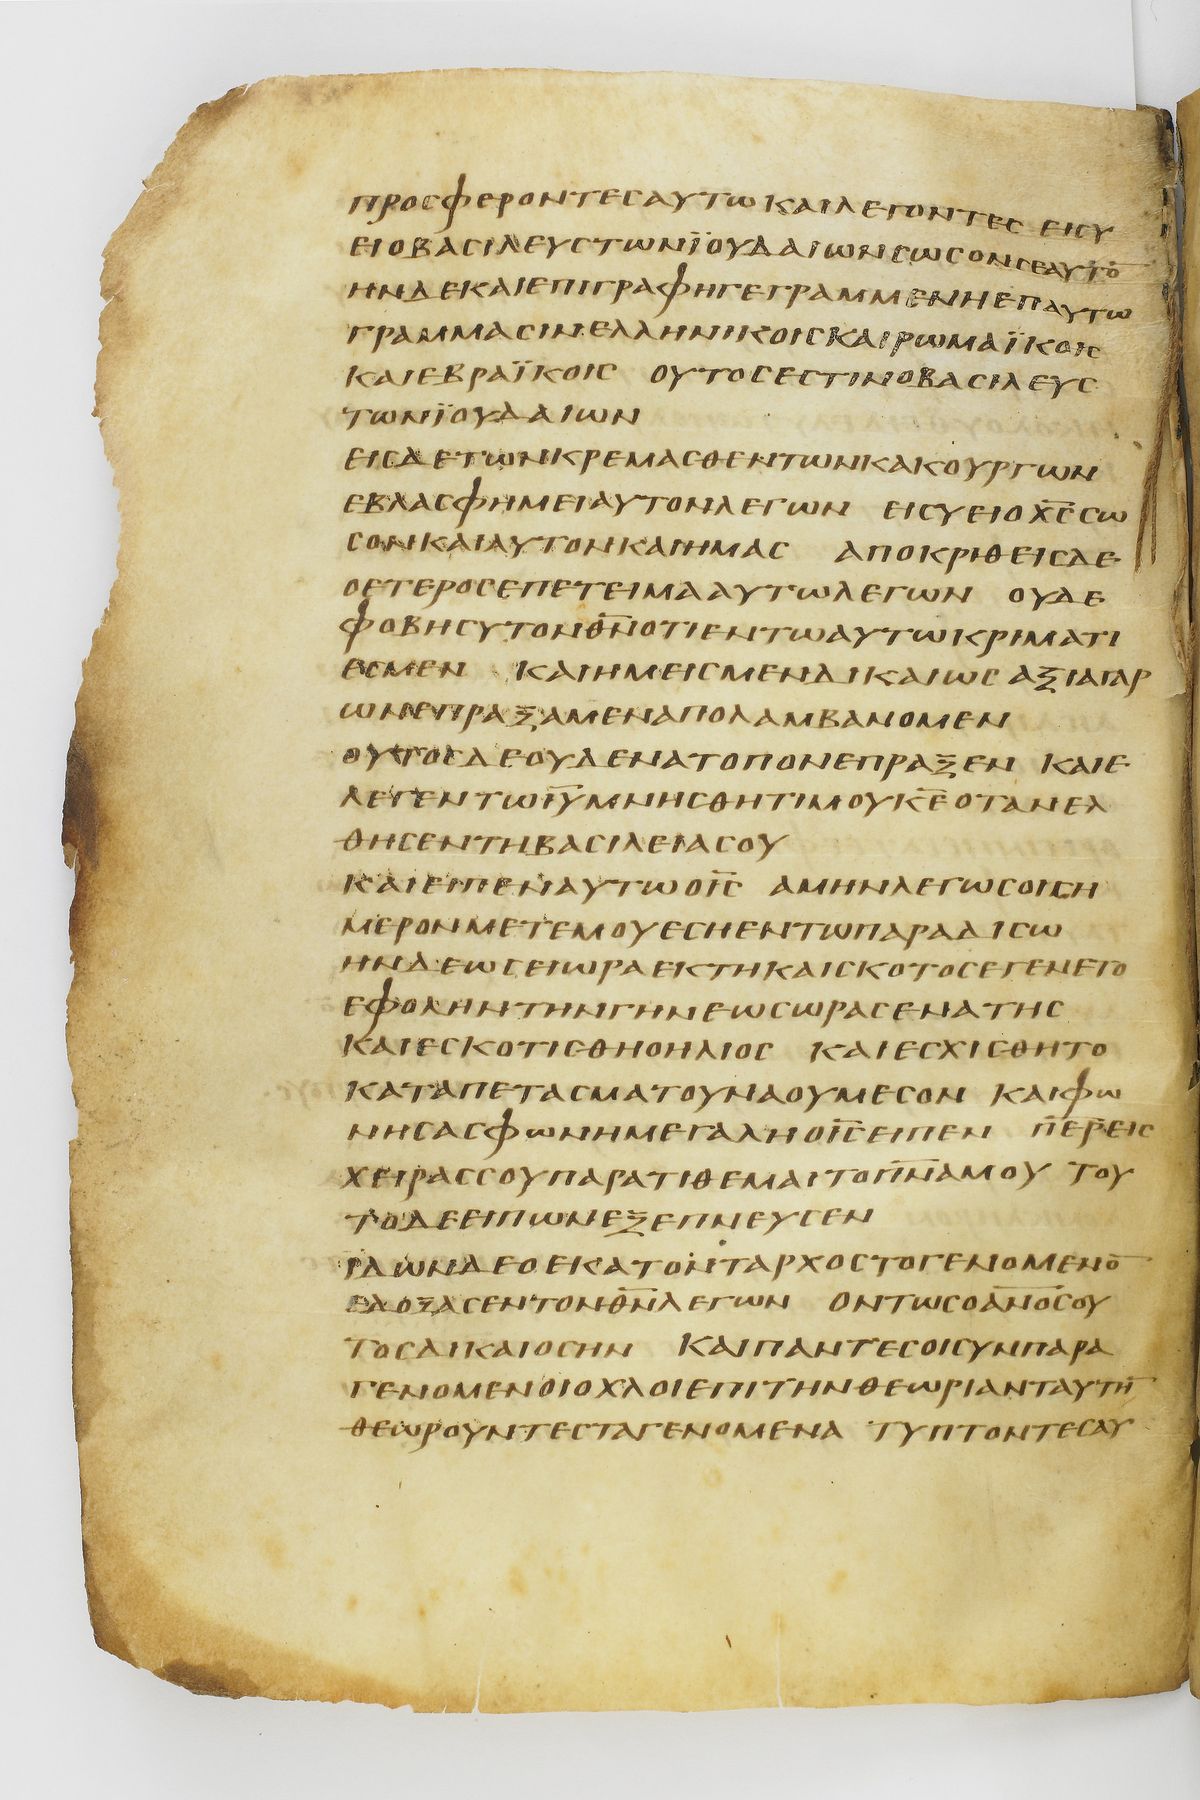 ΠΡΟΣΦΕΡΟΝΤΕΣΑΥΤΩΚΑΙΛΕΓΟΝΤΕΣ ΕΙΣΥ
ΕΙΟΒΑΣΙΛΕΥΣΤΩΝΪΟΥΔΑΙΩΝΣΩΣΟΝΣΕΑΥΤΟ̅
ΗΝΔΕΚΑΙΕΠΙΓΡΑΦΗΓΕΓΡΑΜΜΕΝΗΕΠΑΥΤΩ
ΓΡΑΜΜΑΣΙΝΕΛΛΗΝΙΚΟΙΣΚΑΙΡΩΜΑΪΚΟΙΣ
ΚΑΙΕΒΡΑΪΚΟΙΣ ΟΥΤΟΣΕΣΤΙΝΟΒΑΣΙΛΕΥΣ
ΤΩΝΪΟΥΔΑΙΩΝ
ΕΙΣΔΕΤΩΝΚΡΕΜΑΣΘΕΝΤΩΝΚΑΚΟΥΡΓΩΝ
ΕΒΛΑΣΦΗΜΕΙΑΥΤΟΝΛΕΓΩΝ ΕΙΣΥΕΙΟΧ̅Σ̅ΣΩ
ΣΟΝΚΑΙΑΥΤΟΝΚΑΙΗΜΑΣ ΑΠΟΚΡΙΘΕΙΣΔΕ
ΟΕΤΕΡΟΣΕΠΕΤΕΙΜΑΑΥΤΩΛΕΓΩΝ ΟΥΔΕ
ΦΟΒΗΣΥΤΟΝΘ̅Ν̅ΟΤΙΕΝΤΩΑΥΤΩΚΡΙΜΑΤΙ
ΕΣΜΕΝ ΚΑΙΗΜΕΙΣΜΕΝΔΙΚΑΙΩΣΑΞΙΑΓΑΡ
ΩΝΕΠΡΑΞΑΜΕΝΑΠΟΛΑΜΒΑΝΟΜΕΝ
ΟΥΤΟΣΔΕΟΥΔΕΝΑΤΟΠΟΝΕΠΡΑΞΕΝ ΚΑΙΕ
ΛΕΓΕΝΤΩΙ̅Υ̅ΜΝΗΣΘΗΤΙΜΟΥΚ̅Ε̅ΟΤΑΝΕΛ
ΘΗΣΕΝΤΗΒΑΣΙΛΕΙΑΣΟΥ
ΚΑΙΕΙΠΕΝΑΥΤΩΟΙ̅Σ̅ ΑΜΗΝΛΕΓΩΣΟΙΣΗ
ΜΕΡΟΝΜΕΤΕΜΟΥΕΣΗΕΝΤΩΠΑΡΑΔΙΣΩ
ΗΝΔΕΩΣΕΙΩΡΑΕΚΤΗΚΑΙΣΚΟΤΟΣΕΓΕΝΕΤΟ
ΕΦΟΛΗΝΤΗΝΓΗΝΕΩΣΩΡΑΣΕΝΑΤΗΣ
ΚΑΙΕΣΚΟΤΙΣΘΗΟΗΛΙΟΣ ΚΑΙΕΣΧΙΣΘΗΤΟ
ΚΑΤΑΠΕΤΑΣΜΑΤΟΥΝΑΟΥΜΕΣΟΝ ΚΑΙΦΩ
ΝΗΣΑΣΦΩΝΗΜΕΓΑΛΗΟΙ̅Σ̅ΕΙΠΕΝ Π̅Ε̅Ρ̅ΕΙΣ
ΧΕΙΡΑΣΣΟΥΠΑΡΑΤΙΘΕΜΑΙΤΟΠ̅Ν̅Α̅ΜΟΥ ΤΟΥ
ΤΟΔΕΕΙΠΩΝΕΞΕΠΝΕΥΣΕΝ
ΙΔΩΝΔΕΟΕΚΑΤΟΝΤΑΡΧΟΣΤΟΓΕΝΟΜΕΝΟ̅
ΕΔΟΞΑΣΕΝΤΟΝΘ̅Ν̅ΛΕΓΩΝ ΟΝΤΩΣΟΑ̅Ν̅Ο̅Σ̅ΟΥ
ΤΟΣΔΙΚΑΙΟΣΗΝ ΚΑΙΠΑΝΤΕΣΟΙΣΥΝΠΑΡΑ
ΓΕΝΟΜΕΝΟΙΟΧΛΟΙΕΠΙΤΗΝΘΕΩΡΙΑΝΤΑΥΤΗ̅
ΘΕΩΡΟΥΝΤΕΣΤΑΓΕΝΟΜΕΝΑ ΤΥΠΤΟΝΤΕΣΑΥ